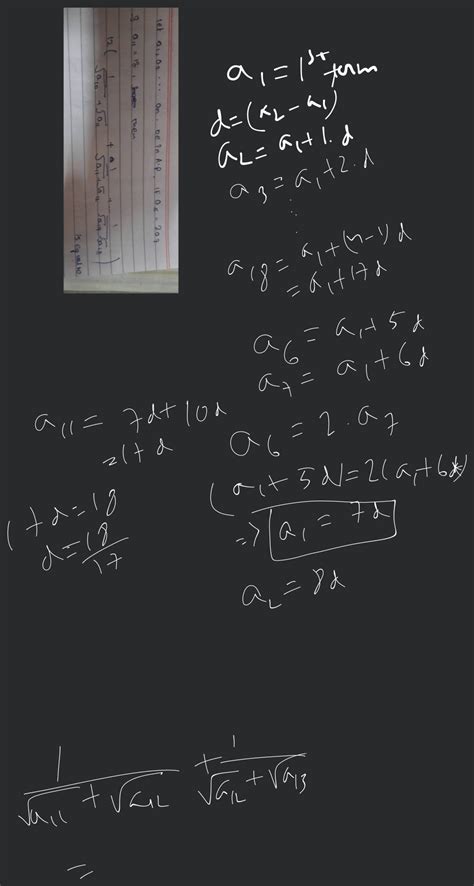 Let a₁, a₂ ... aₙ be in A.P. if a₅ = 2a₇
& a₁₁ = 18, then
12 (
is equal to
a₁ = 1st term
d = (x₂ - a₁)
a₂ = a₁ + 1.d
a₃ = a₁ + 2.d
a₁₈ = a₁ + (n-1)d
= a₁ + 17d
a₆ = a₁ + 5d
a₇ = a₁ + 6d
a₁₁ = 7d + 10d
= 17d
a₆ = 2.a₇
(a₁ + 5d) = 2(a₁ + 6d)
17d = 18
d = 18/17
=> a₁ = 7d
a₂ = 8d
1/(√a₁₁ + √a₁₂) + 1/(√a₁₂ + √a₁₃)
=